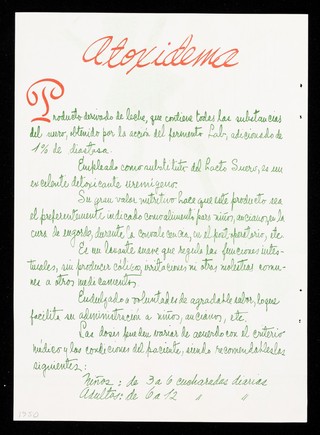 Atoxidema
Producto derivado de leche, que contiene todas las substancias
del suero, obtenido por la acción del fermento Lab, adicionado de
1% de diastasa.
Empleado como substituto del Lacto Suero, es un
excelente detoxicante uremígeno.
Su gran valor nutritivo hace que este producto sea
el preferentemente indicado para niños, ancianos, en la
cura de engorde, durante la convalecencia, en el post-operatorio, etc.
Es un laxante suave que regula las funciones intes-
tinales, sin producir cólicos, irritaciones ni otras molestias comu-
nes a otros medicamentos.
Endulzado a voluntad es de agradable sabor, lo que
facilita su administración a niños, ancianos, etc.
Las doses pueden variar de acuerdo con el criterio
médico y las condiciones del paciente, siendo recomendables las
siguientes:
Niños: de 3 a 6 cucharadas diarias
Adultos: de 6 a 12 " "
1950